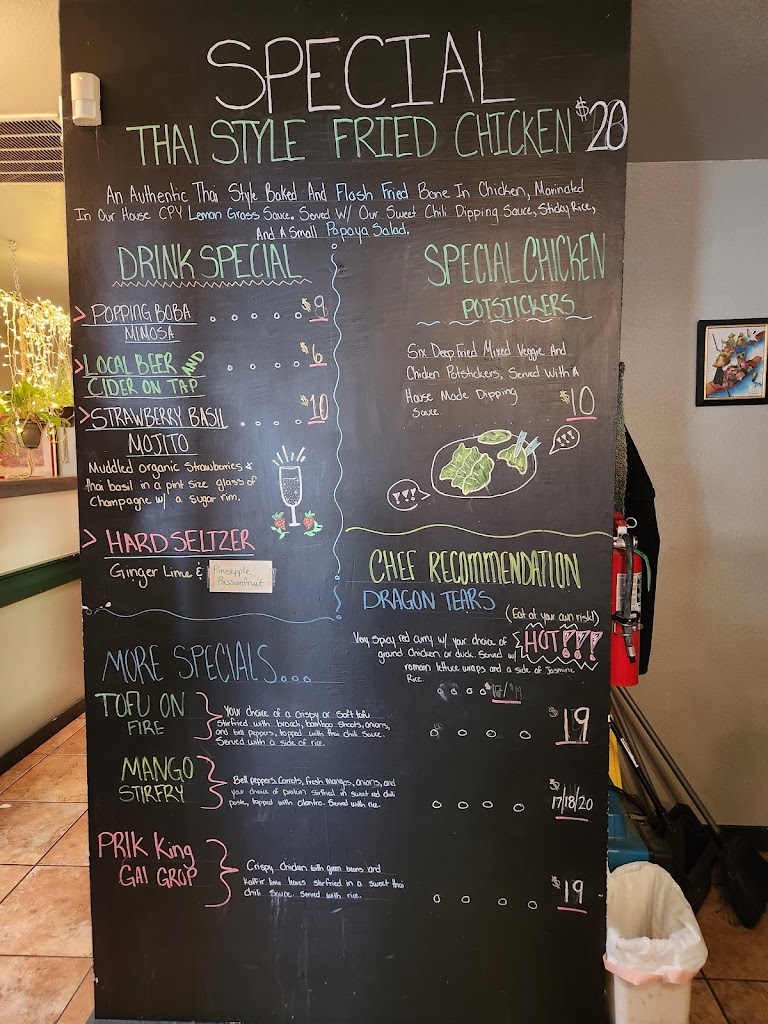 SPECIAL
THAI STYLE FRIED CHICKEN $20
An Authentic Thai Style Baked And Flash Fried Bone In Chicken, Marinated
In Our House CPY Lemon Grass Sauce. Served W/ Our Sweet Chili Dipping Sauce, Sticky Rice,
And A Small Papaya Salad.
DRINK SPECIAL
> POPPING BOBA $9
MIMOSA
> LOCAL BEER AND $6
CIDER ON TAP
> STRAWBERRY BASIL $10
MOJITO
Muddled organic strawberries &
thai basil in a pint size glass of
Champagne w/ a sugar rim.
> HARD SELTZER
Ginger Lime & Pineapple
Passionfruit
SPECIAL CHICKEN
POTSTICKERS
Six Deep Fried Mixed Veggie And
Chicken Potstickers, Served With A
House Made Dipping
Sauce. $10
CHEF RECOMMENDATION
DRAGON TEARS
(Eat at your own risk!)
Very spicy red curry w/ your choice of
ground chicken or duck. Served w/
HOT!!!
romain lettuce wraps and a side of Jasmine
Rice.
MORE SPECIALS...
TOFU ON
FIRE
Your choice of a crispy or soft tofu
stirfried with broccli, bamboo shoots, onions,
and bell peppers, topped with thai chili sauce.
Served with a side of rice.
$19
MANGO
STIRFRY
Bell peppers, carrots, fresh mangos, onions, and
your choice of protein stirfried in sweet red chili
paste, topped with cilantro. Served with rice.
$17/18/20
PRIK King
GAI GROP
Crispy chicken with green beans and
Kaffir lime leaves stirfried in a sweet thai
chili sauce. Served with rice.
$19